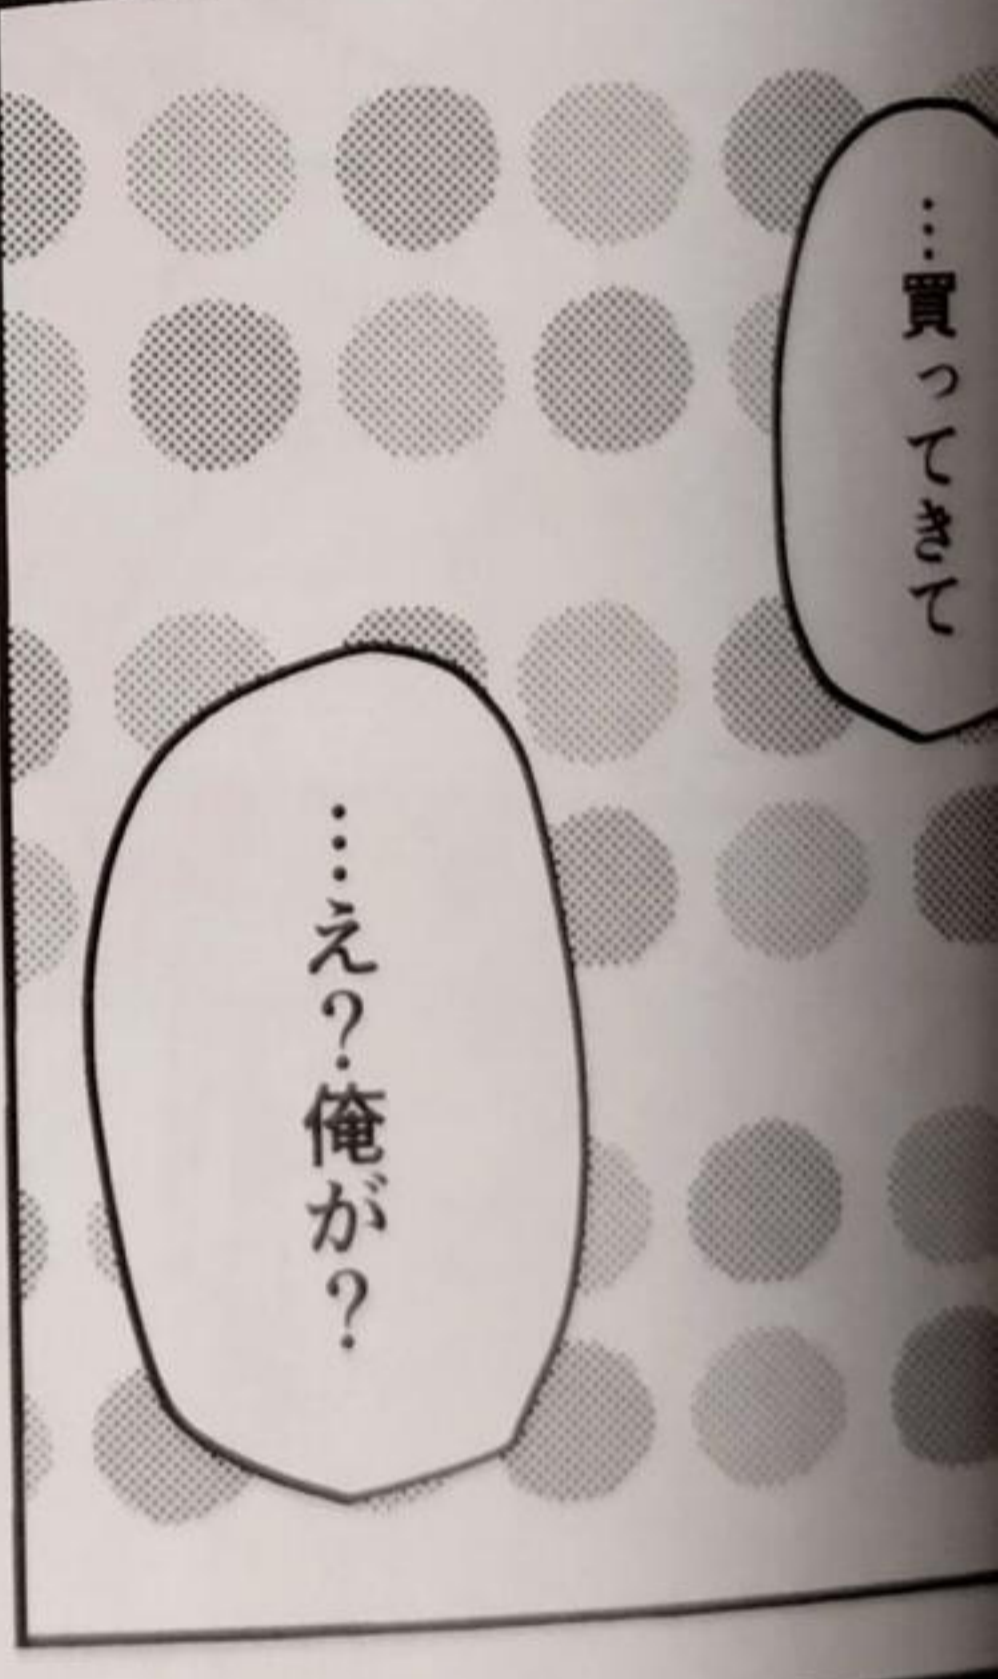 …買ってきて
…え？俺が？